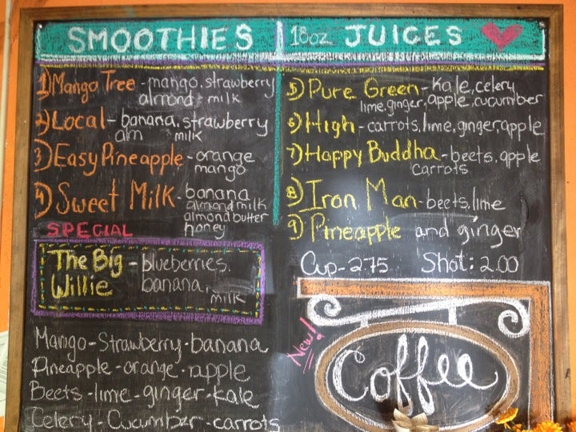 SMOOTHIES
1) Mango Tree - mango, strawberry
almond milk
2) Local - banana, strawberry
alm milk
3) Easy Pineapple - orange
mango
4) Sweet Milk - banana
almond milk
almond butter
honey
SPECIAL
The Big - blueberries,
Willie banana,
milk
Mango - Strawberry - banana
Pineapple - orange - apple
Beets - lime - ginger - kale
Celery - Cucumber - carrots
18oz JUICES
5) Pure Green - Kale, celery
lime, ginger, apple, cucumber
6) High - carrots, lime, ginger, apple
7) Happy Buddha - beets, apple
carrots
8) Iron Man - beets, lime
9) Pineapple and ginger
Cup - 2.75 Shot: 2.00
New!
Coffee